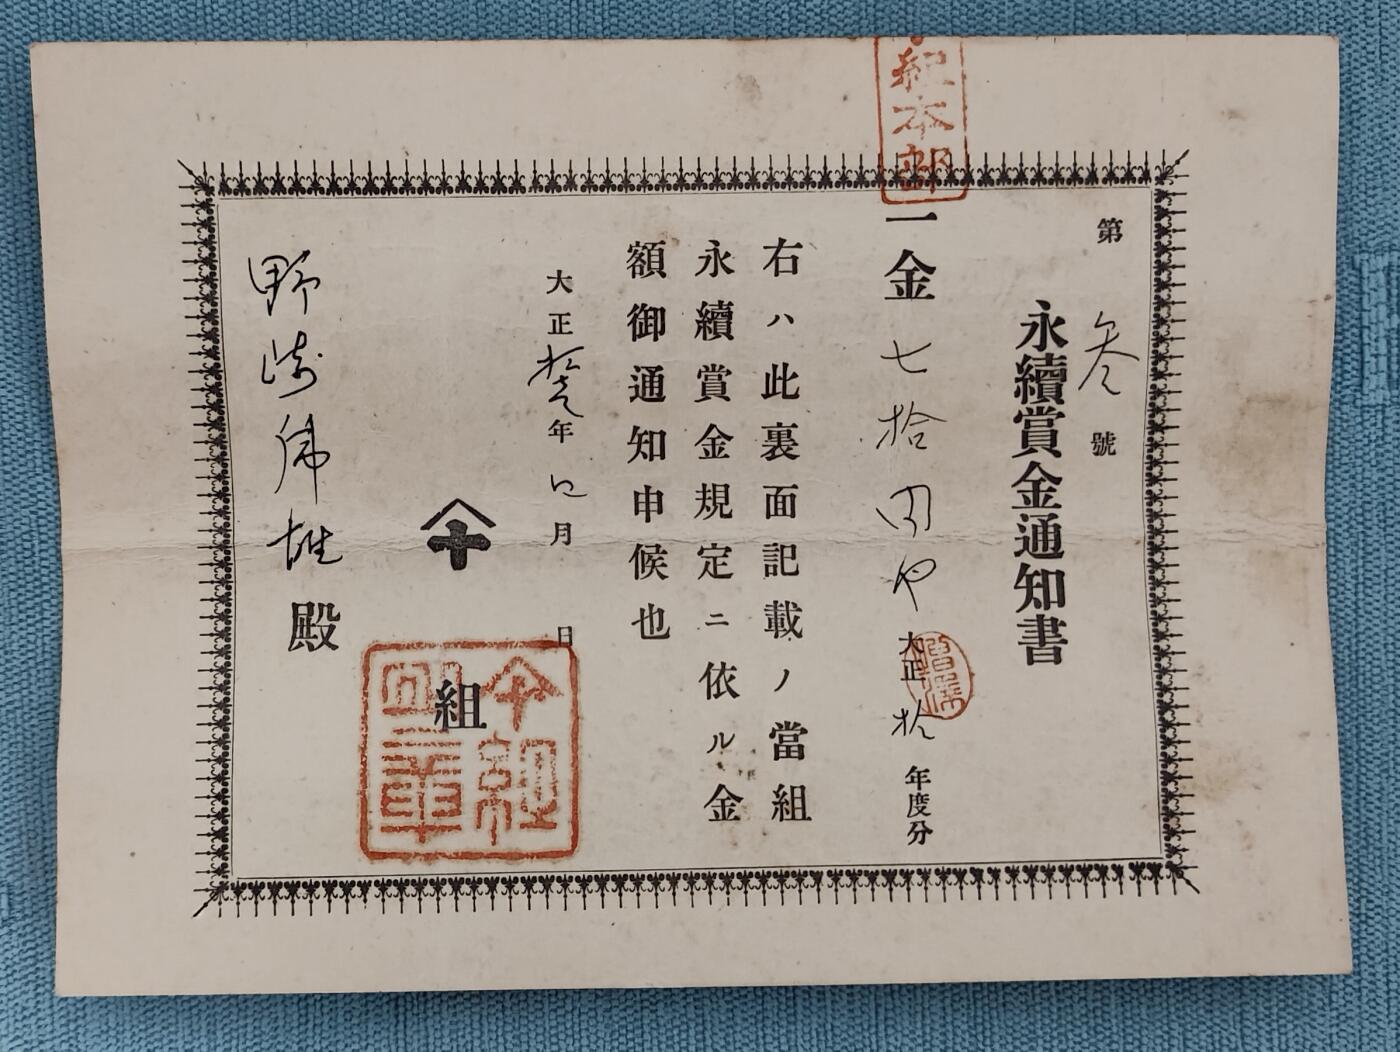 紀本部
第叁號
永續賞金通知書
一金七拾円也
大正拾年度分
右ハ此裏面記載ノ當組
永續賞金規定ニ依ル金
額御通知申候也
大正拾壱年 月 日
組
野 虎雄殿